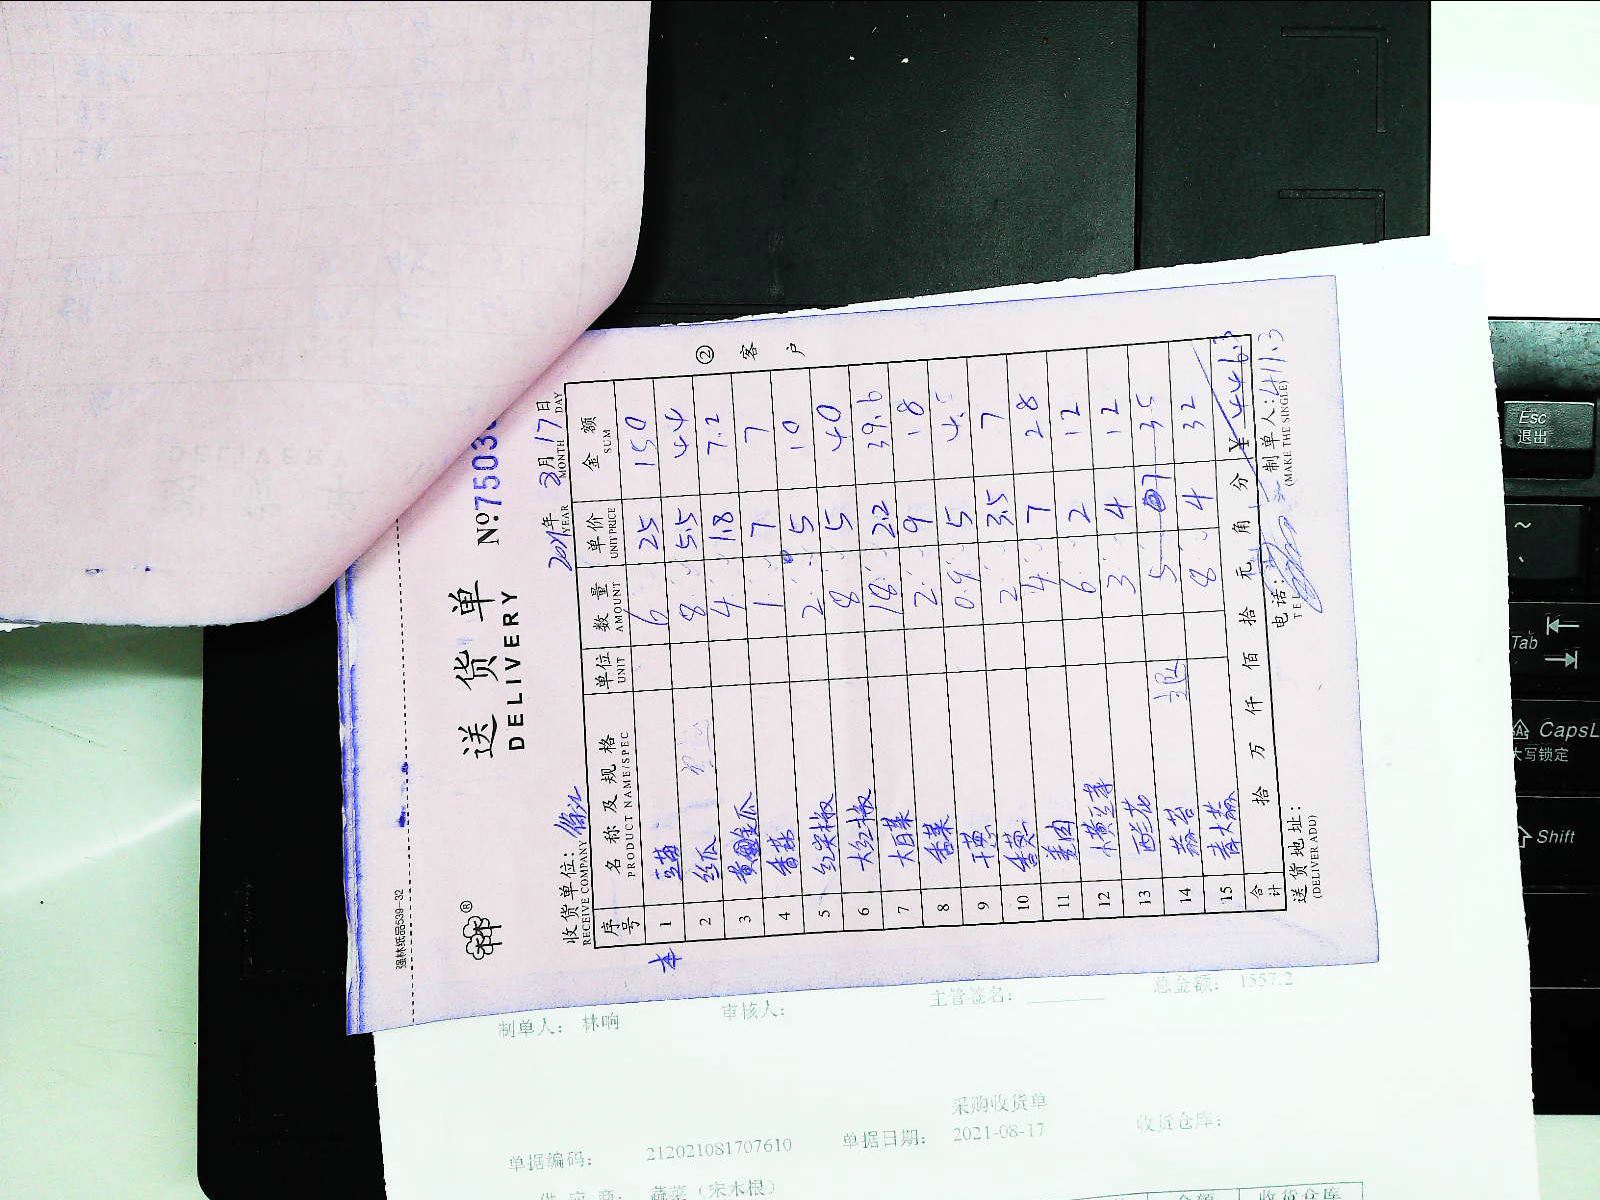 强林纸品539-32
送货单
DELIVERY
№7503
收货单位：
RECEIVE COMPANY
2021年 8月17日
YEAR MONTH DAY
序号 名称及规格 单位 数量 单价 金额
PRODUCT NAME/SPEC UNIT AMOUNT UNIT PRICE SUM
1 豆苗 6 25 150
2 丝瓜 8 5.5 44
3 黄金瓜 4 1.8 7.2
4 香菇 1 7 7
5 红尖椒 2 5 10
6 大红椒 8 5 40
7 大白菜 18 2.2 39.6
8 香菜 2 9 18
9 干葱 0.9 5 4.5
10 香葱 2 3.5 7
11 姜肉 4 7 28
12 小黄豆芽 6 2 12
13 西兰花 3 4 12
14 蒜苔 退 5 7 35
15 青大蒜 8 4 32
合计 拾 万 仟 佰 拾 元 角 分 ¥446.3
送货地址：
(DELIVER ADD)
电话：
TEL
制单人：411.3
(MAKE THE SINGLE)
② 客户
制单人： 林响 审核人： 主管签名： 总金额： 1557.2
采购收货单
单据编码： 212021081707610 单据日期： 2021-08-17 收货仓库：
供应商： 蔬菜（宋木根）
金额 收货仓库
Esc
退出
~
Tab
CapsL
大写锁定
Shift